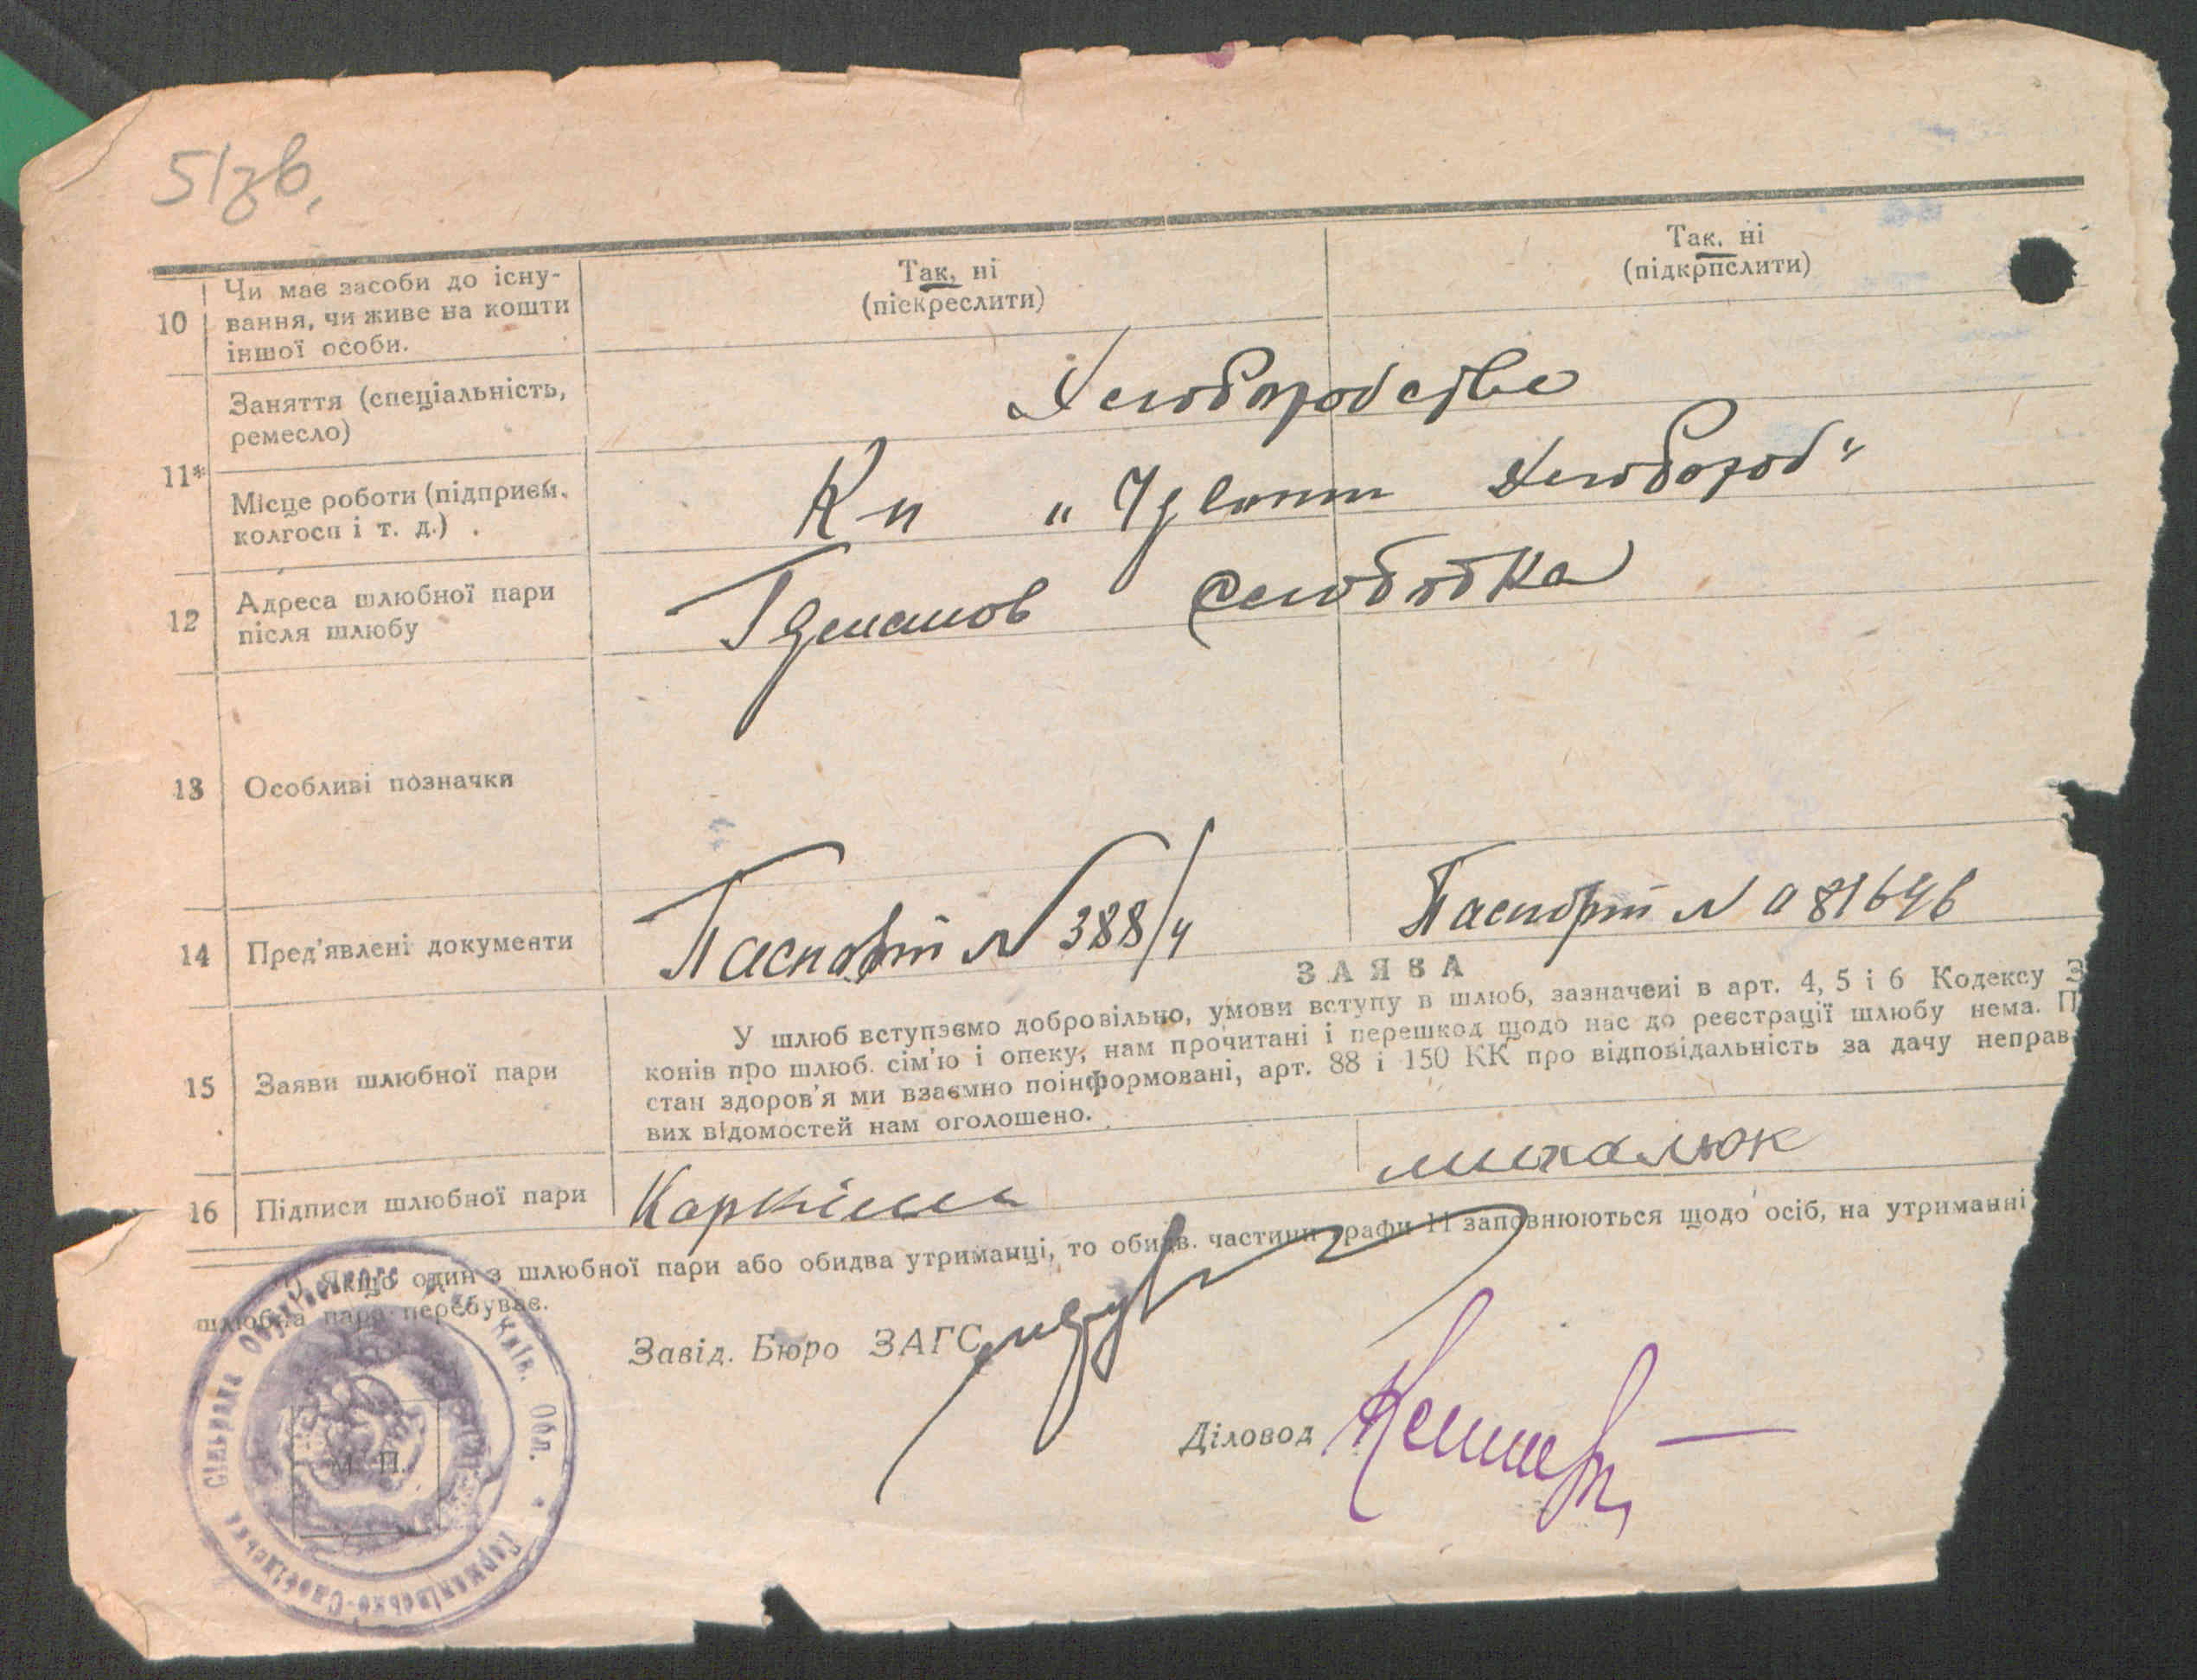 51зв.
Так, ні
(підкрпслити)
Так, ні
(піскреслити)
10
Чи має засоби до існу-
вання, чи живе на кошти
іншої особи.
11*
Заняття (спеціальність,
ремесло)
Місце роботи (підприєм.
колгосп і т. д.)
К-п „
12
Адреса шлюбної пари
після шлюбу
слободка
13
Особливі позначки
14
Пред'явлені документи
Паспорт N 388/4
Паспорт N 081646
15
Заяви шлюбної пари
ЗАЯВА
У шлюб вступаємо добровільно, умови вступу в шлюб, зазначені в арт. 4, 5 і 6 Кодексу З
конів про шлюб. сім'ю і опеку, нам прочитані і перешкод щодо нас до реєстрації шлюбу нема. П
стан здоров'я ми взаємно поінформовані, арт. 88 і 150 КК про відповідальність за дачу неправ-
вих відомостей нам оголошено.
16
Підписи шлюбної пари
михалюк
*) Якщо один з шлюбної пари або обидва утриманці, то обидв. частини графи 11 заповнюються щодо осіб, на утриманні
шлюбна пара перебуває.
Завід. Бюро ЗАГС
Діловод
М. П.
Германівсько-Слобідська Сільрада Обухівського р-ну Київ. Обл.